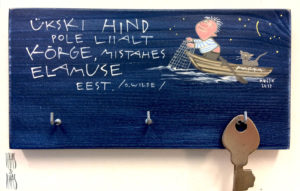 ÜKSKI HIND
POLE LIIALT
KÕRGE, MISTAHES
ELAMUSE
EEST. /O. WILDE/